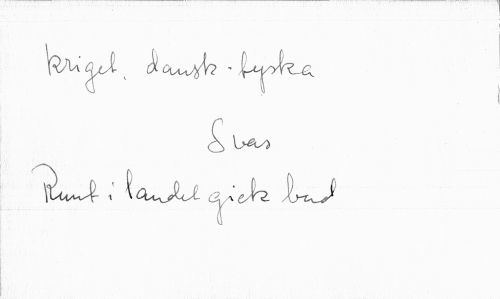 kriget, dansk-tyska
Svas
Runt i landet gick bud